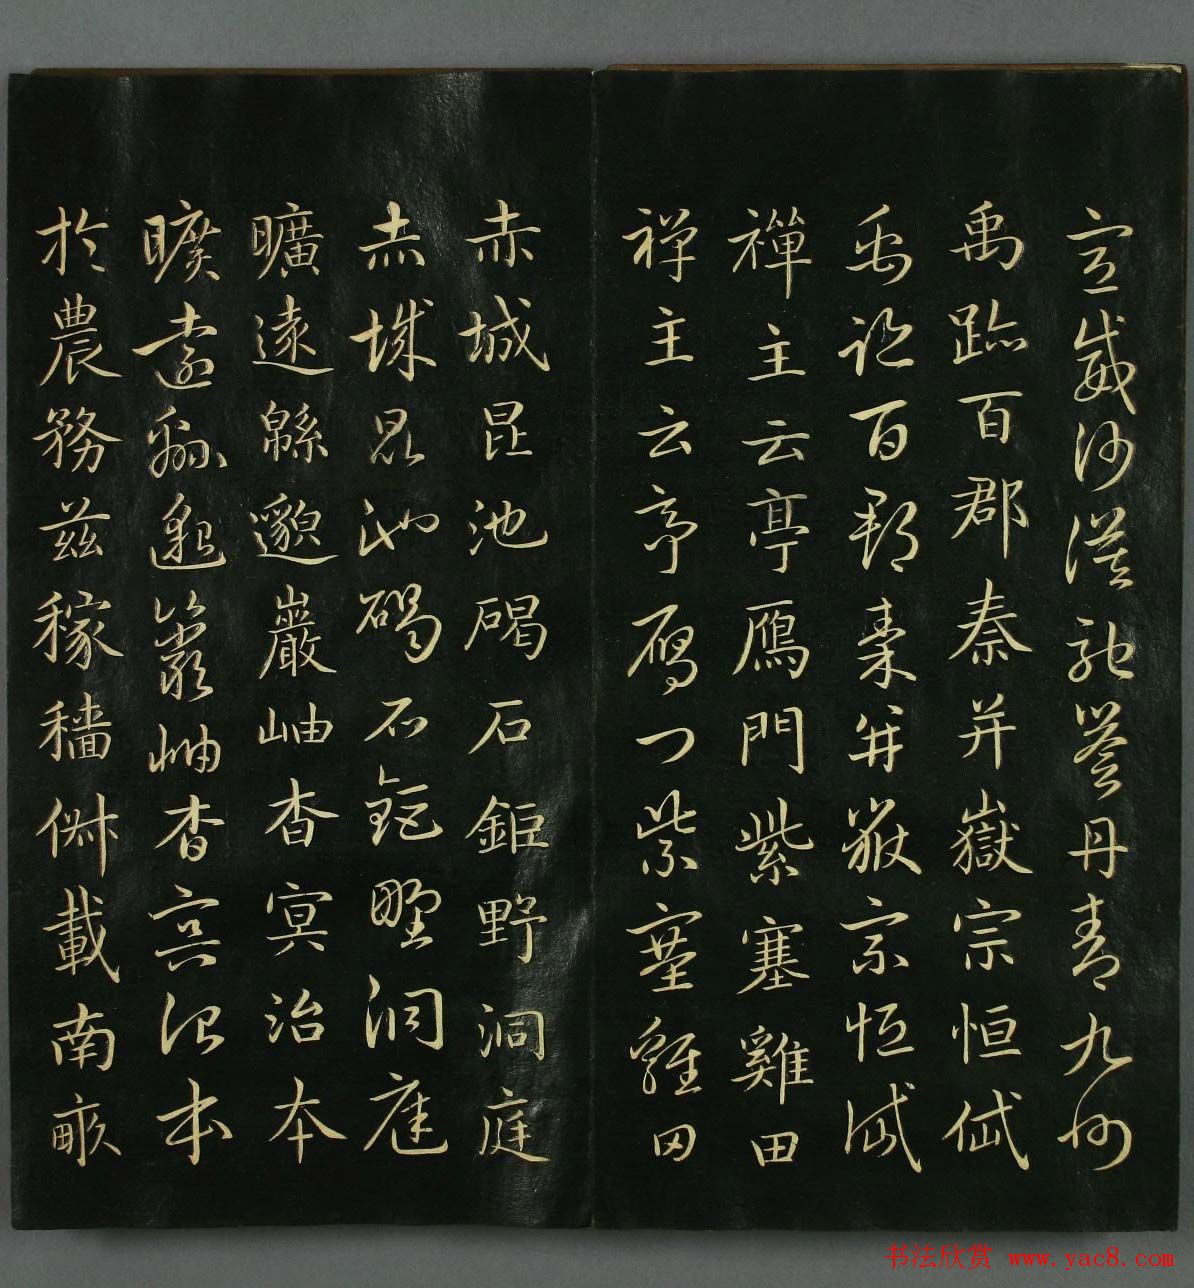 宣威沙漠馳譽丹青九州
禹跡百郡秦并嶽宗恒岱
禹跡百郡秦并嶽宗恒岱
禪主云亭鴈門紫塞雞田
禪主云亭鴈門紫塞雞田
赤城昆池碣石鉅野洞庭
赤城昆池碣石鉅野洞庭
曠遠緜邈巖岫杳冥治本
曠遠緜邈巖岫杳冥治本
於農務茲稼穡俶載南畝
书法欣赏 www.yac8.com